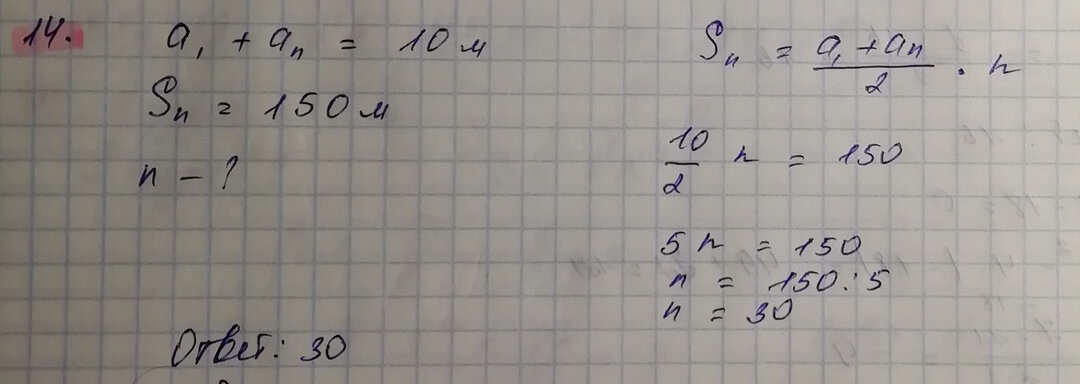 14. a₁ + aₙ = 10 м
Sₙ = 150 м
n - ?
Sₙ = (a₁ + aₙ)/2 · n
10/2 n = 150
5 n = 150
n = 150 : 5
n = 30
Ответ: 30